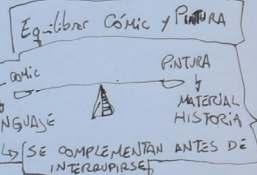 Equilibrar Cómic y PINTURA
COMIC
PINTURA
NGUAJE
MATERIAL
HISTORIA
SE COMPLEMENTAN ANTES DE
INTERRUPIRSE